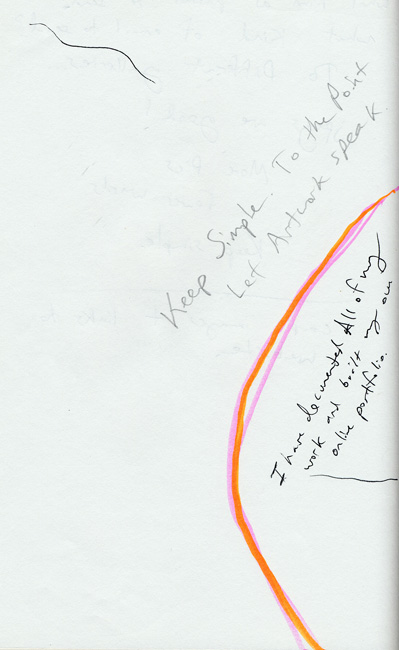 Keep Simple. To the Point
Let Artwork speak.
I have documented All of my
work and built my own
online portfolio.